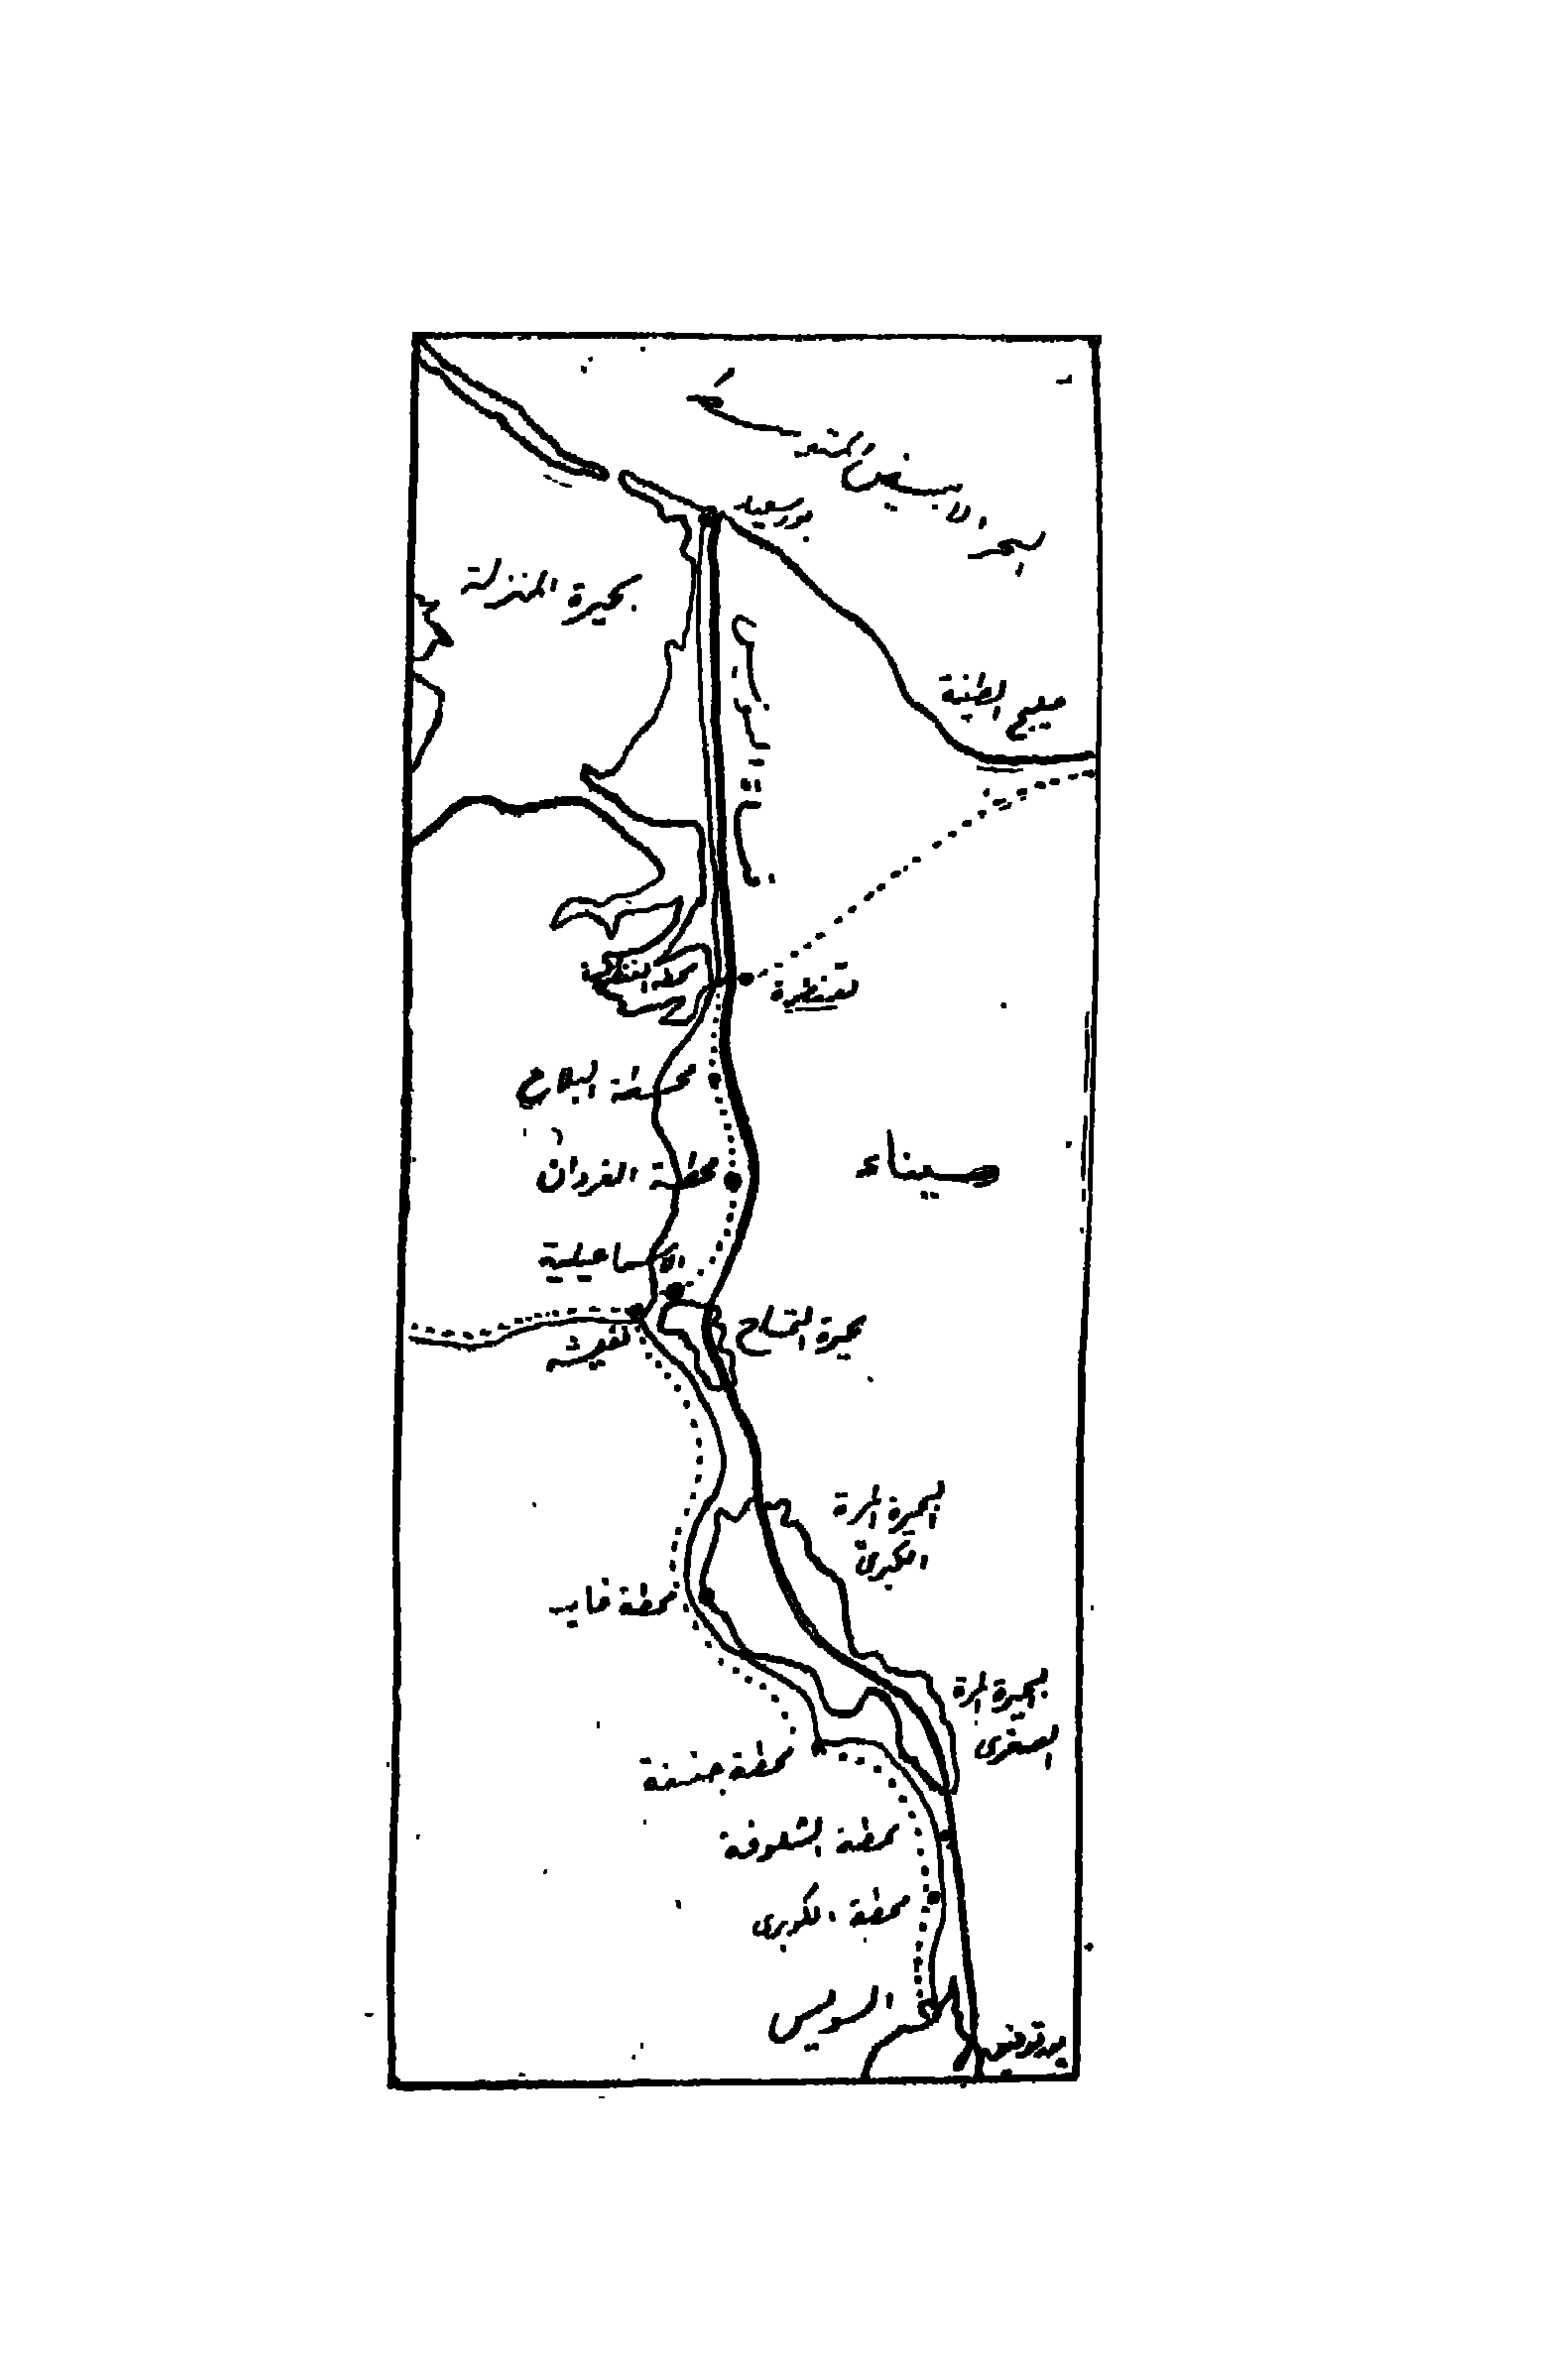 البحر الأبيض المتوسط
بورسعيد
بحيرة المنزلة
خليج الطينة
محطة القنطرة
قنطرة
محطة البلاح
محطة الفردان
سيناء
الإسماعيلية
بحيرة التمساح
البحيرة المرة
الكبرى
محطة فايد
بحيرة المرة
الصغرى
محطة جنيفة
محطة الشلوفة
محطة الكوبرى
السويس